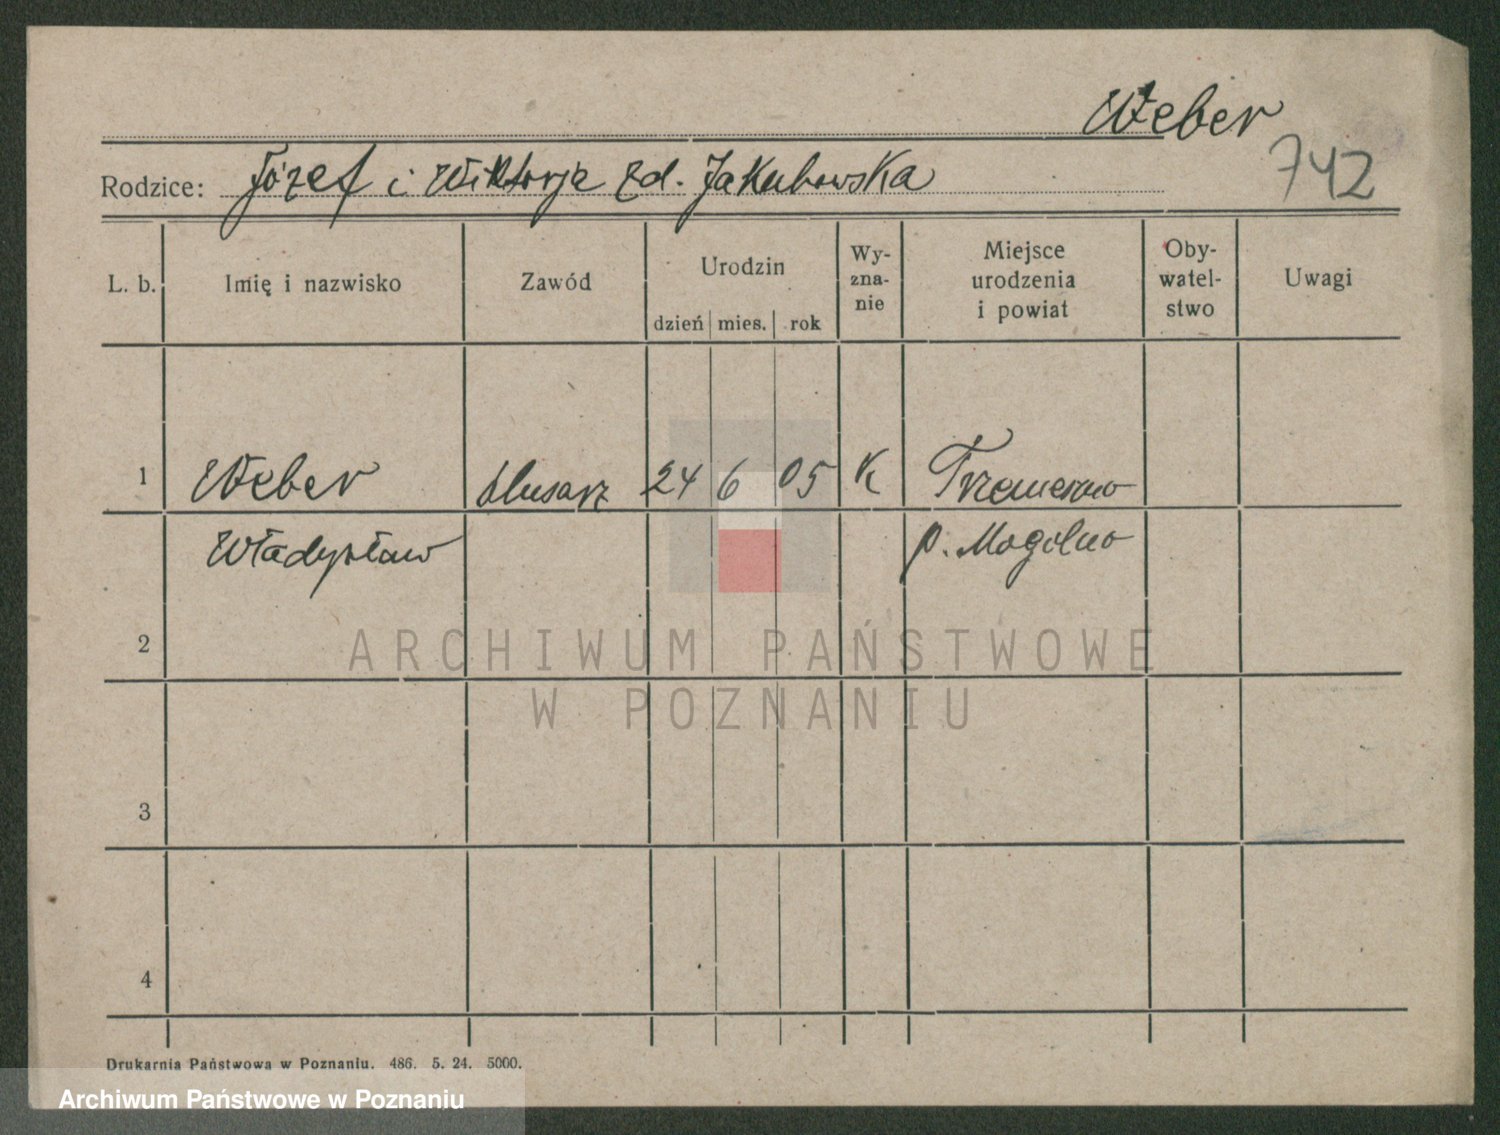 Weber
742
Rodzice: Józef i Wiktorja zd. Jakubowska
L. b. Imię i nazwisko Zawód Urodzin dzień mies. rok Wy-zna-nie Miejsce urodzenia i powiat Oby-watel-stwo Uwagi
1 Weber ślusarz 24 6 05 K Trzemeszno
Władysław p. Mogilno
2
ARCHIWUM PAŃSTWOWE
W POZNANIU
3
4
Drukarnia Państwowa w Poznaniu. 486. 5. 24. 5000.
Archiwum Państwowe w Poznaniu